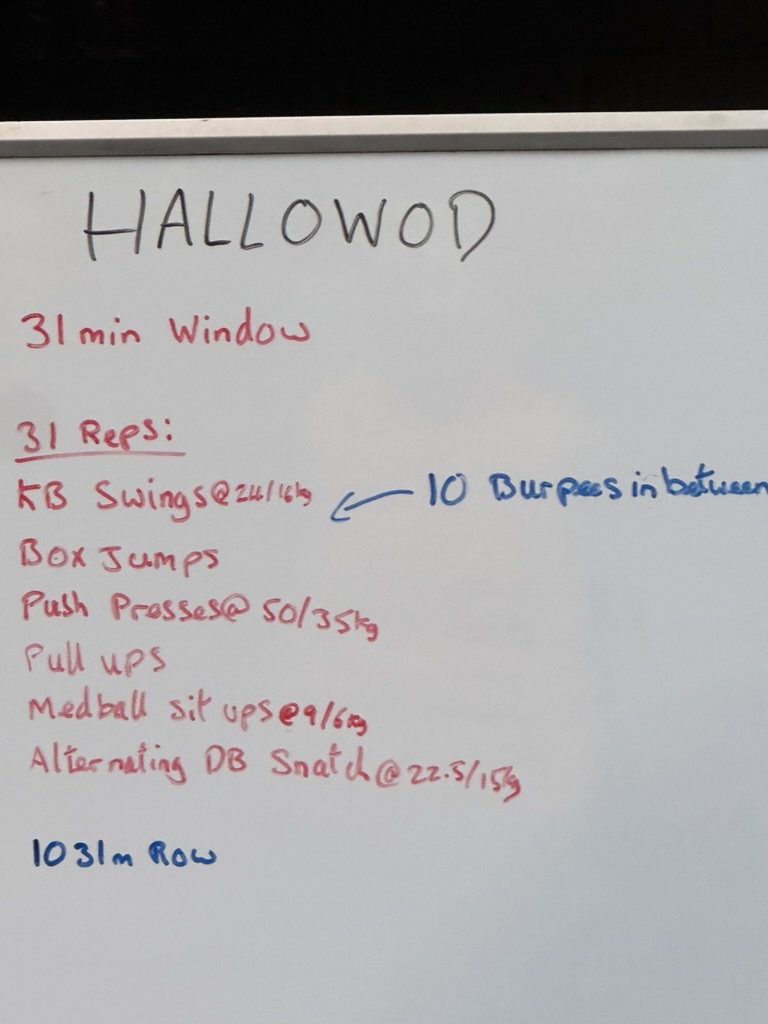 HALLOWOD
31 min Window
31 Reps:
KB Swings @ 24/16kg
10 Burpees in between
Box Jumps
Push Presses @ 50/35kg
Pull ups
Medball sit ups @ 9/6kg
Alternating DB Snatch @ 22.5/15kg
1031m Row